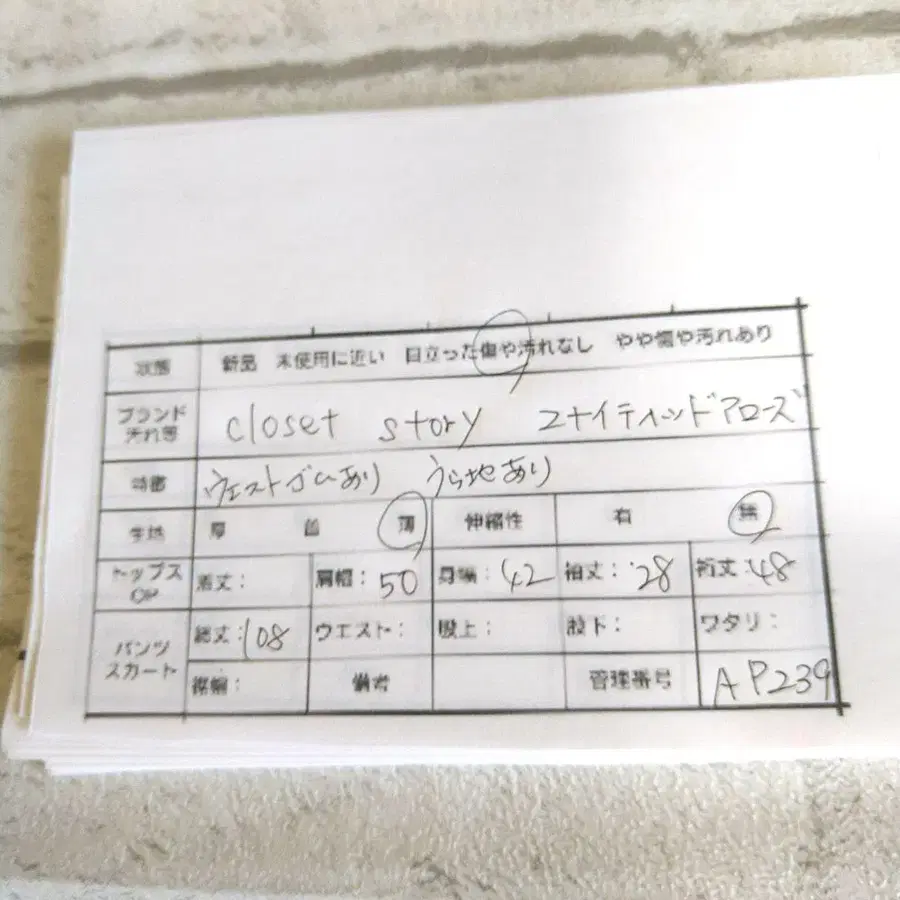 状態 新品 未使用に近い 目立った傷や汚れなし やや傷や汚れあり
ブランド closet story ユナイテッドアローズ
汚れ等
特徴 ウエストゴムあり うら地あり
生地 厚 普 薄 伸縮性 有 無
トップス 着丈: 肩幅:50 身幅:42 袖丈:28 裄丈:48
OP
パンツ 総丈:108 ウエスト: 股上: 股下: ワタリ:
スカート 裾幅: 備考 管理番号 AP239